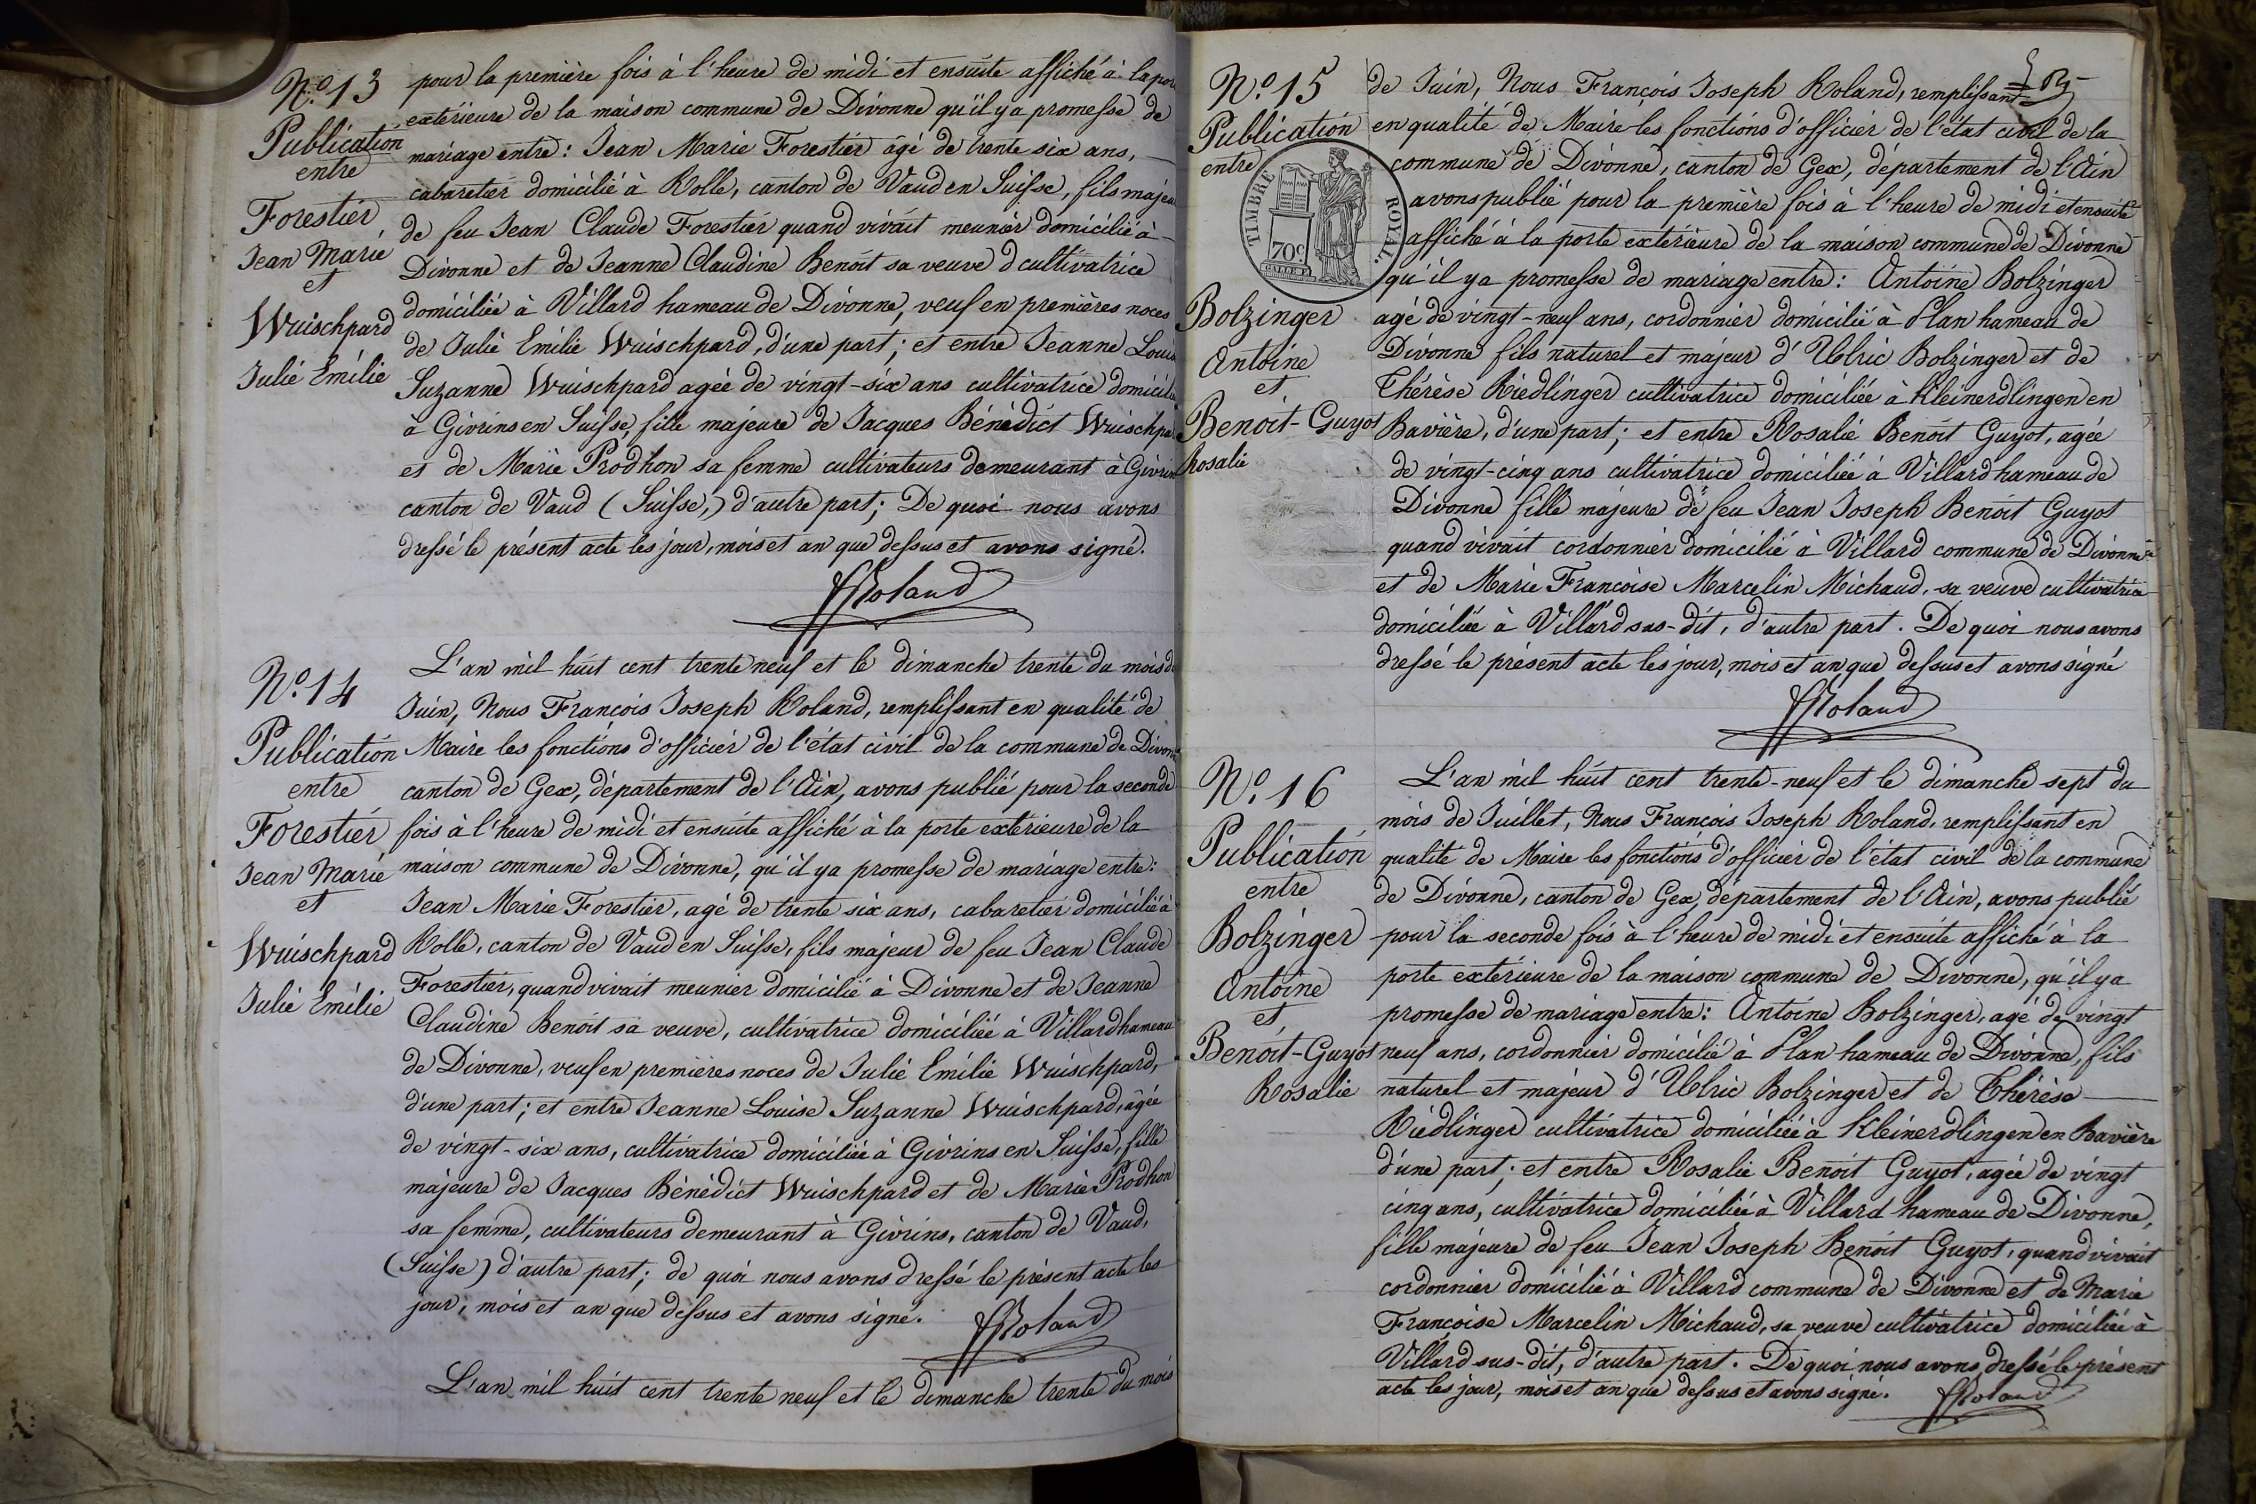 N.º 13
Publication
entre
Forestier
Jean Marie
et
Wuischpard
Julie Emilie
pour la première fois à l'heure de midi et ensuite affiché à la
extérieure de la maison commune de Divonne qu'il y a promesse de
mariage entre: Jean Marie Forestier âgé de trente six ans,
cabaretier domicilié à Rolle, canton de Vaud en Suisse, fils majeur
de feu Jean Claude Forestier quand vivait meunier domicilié à
Divonne et de Jeanne Claudine Benoit sa veuve d cultivatrice
domiciliée à Villard hameau de Divonne, veuf en premières noces
de Julie Emilie Wuischpard, d'une part; et entre Jeanne Louis
Suzanne Wuischpard agée de vingt-six ans cultivatrice domicili
à Givrins en Suisse, fille majeure de Jacques Bénédict Wuischpa
et de Marie Prodhon sa femme cultivateurs demeurant à Givrin
canton de Vaud (Suisse,) d'autre part; De quoi nous avons
dressé le présent acte les jour, mois et an que dessus et avons signé.
Roland
N.º 14
Publication
entre
Forestier
Jean Marie
et
Wuischpard
Julie Emilie
L'an mil huit cent trente neuf et le dimanche trente du mois de
Juin, Nous François Joseph Roland, remplissant en qualité de
Maire les fonctions d'officier de l'état civil de la commune de Divonn
canton de Gex, département de l'Ain, avons publié pour la seconde
fois à l'heure de midi et ensuite affiché à la porte extérieure de la
maison commune de Divonne, qu'il y a promesse de mariage entre:
Jean Marie Forestier, agé de trente six ans, cabaretier domicilié à
Rolle, canton de Vaud en Suisse, fils majeur de feu Jean Claude
Forestier, quand vivait meunier domicilié à Divonne et de Jeanne
Claudine Benoit sa veuve, cultivatrice domiciliée à Villard hameau
de Divonne, veuf en premières noces de Julie Emilie Wuischpard,
d'une part; et entre Jeanne Louise Suzanne Wuischpard, agée
de vingt-six ans, cultivatrice domiciliée à Givrins en Suisse, fille
majeure de Jacques Bénédict Wuischpard et de Marie Prodhon
sa femme, cultivateurs demeurant à Givrins, canton de Vaud,
(Suisse) d'autre part; de quoi nous avons dressé le présent acte les
jour, mois et an que dessus et avons signé.
Roland
L'an mil huit cent trente neuf et le dimanche trente du mois
N.º 15
Publication
entre
TIMBRE ROYAL
70c.
Bolzinger
Antoine
et
Benoit-Guyot
Rosalie
de Juin, Nous François Joseph Roland, remplissant
en qualité de Maire les fonctions d'officier de l'état civil de la
commune de Divonne, canton de Gex, département de l'Ain
avons publié pour la première fois à l'heure de midi et ensuite
affiché à la porte extérieure de la maison commune de Divonne
qu'il y a promesse de mariage entre: Antoine Bolzinger
agé de vingt-neuf ans, cordonnier domicilié à Plan hameau de
Divonne fils naturel et majeur d'Ulric Bolzinger et de
Thérèse Riedlinger cultivatrice domiciliée à Kleinerdlingen en
Bavière, d'une part; et entre Rosalie Benoit Guyot, agée
de vingt-cinq ans cultivatrice domiciliée à Villard hameau de
Divonne fille majeure de feu Jean Joseph Benoit Guyot
quand vivait cordonnier domicilié à Villard commune de Divonne
et de Marie Françoise Marcelin Michaud, sa veuve cultivatrice
domiciliée à Villard sus-dit, d'autre part. De quoi nous avons
dressé le présent acte les jour, mois et an que dessus et avons signé
Roland
N.º 16
Publication
entre
Bolzinger
Antoine
et
Benoit-Guyot
Rosalie
L'an mil huit cent trente-neuf et le dimanche sept du
mois de Juillet, Nous François Joseph Roland, remplissant en
qualité de Maire les fonctions d'officier de l'état civil de la commune
de Divonne, canton de Gex, département de l'Ain, avons publié
pour la seconde fois à l'heure de midi et ensuite affiché à la
porte extérieure de la maison commune de Divonne, qu'il y a
promesse de mariage entre: Antoine Bolzinger, agé de vingt
neuf ans, cordonnier domicilié à Plan hameau de Divonne, fils
naturel et majeur d'Ulric Bolzinger et de Thérèse
Riedlinger cultivatrice domiciliée à Kleinerdlingen en Bavière
d'une part; et entre Rosalie Benoit Guyot, agée de vingt
cinq ans, cultivatrice domiciliée à Villard hameau de Divonne,
fille majeure de feu Jean Joseph Benoit Guyot, quand vivait
cordonnier domicilié à Villard commune de Divonne et de Marie
Françoise Marcelin Michaud, sa veuve cultivatrice domiciliée à
Villard sus-dit, d'autre part. De quoi nous avons dressé le présent
acte les jour, mois et an que dessus et avons signé.
Roland